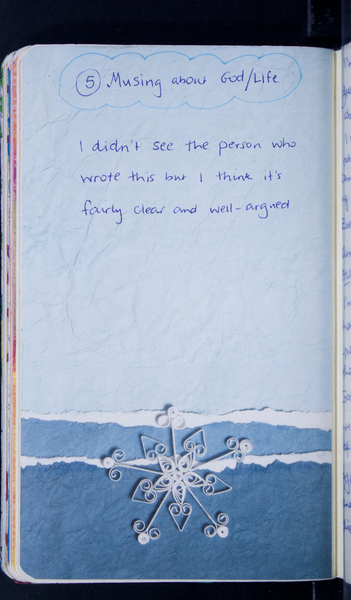 5 Musing about God/Life
I didn't see the person who
wrote this but I think it's
fairly clear and well-argued